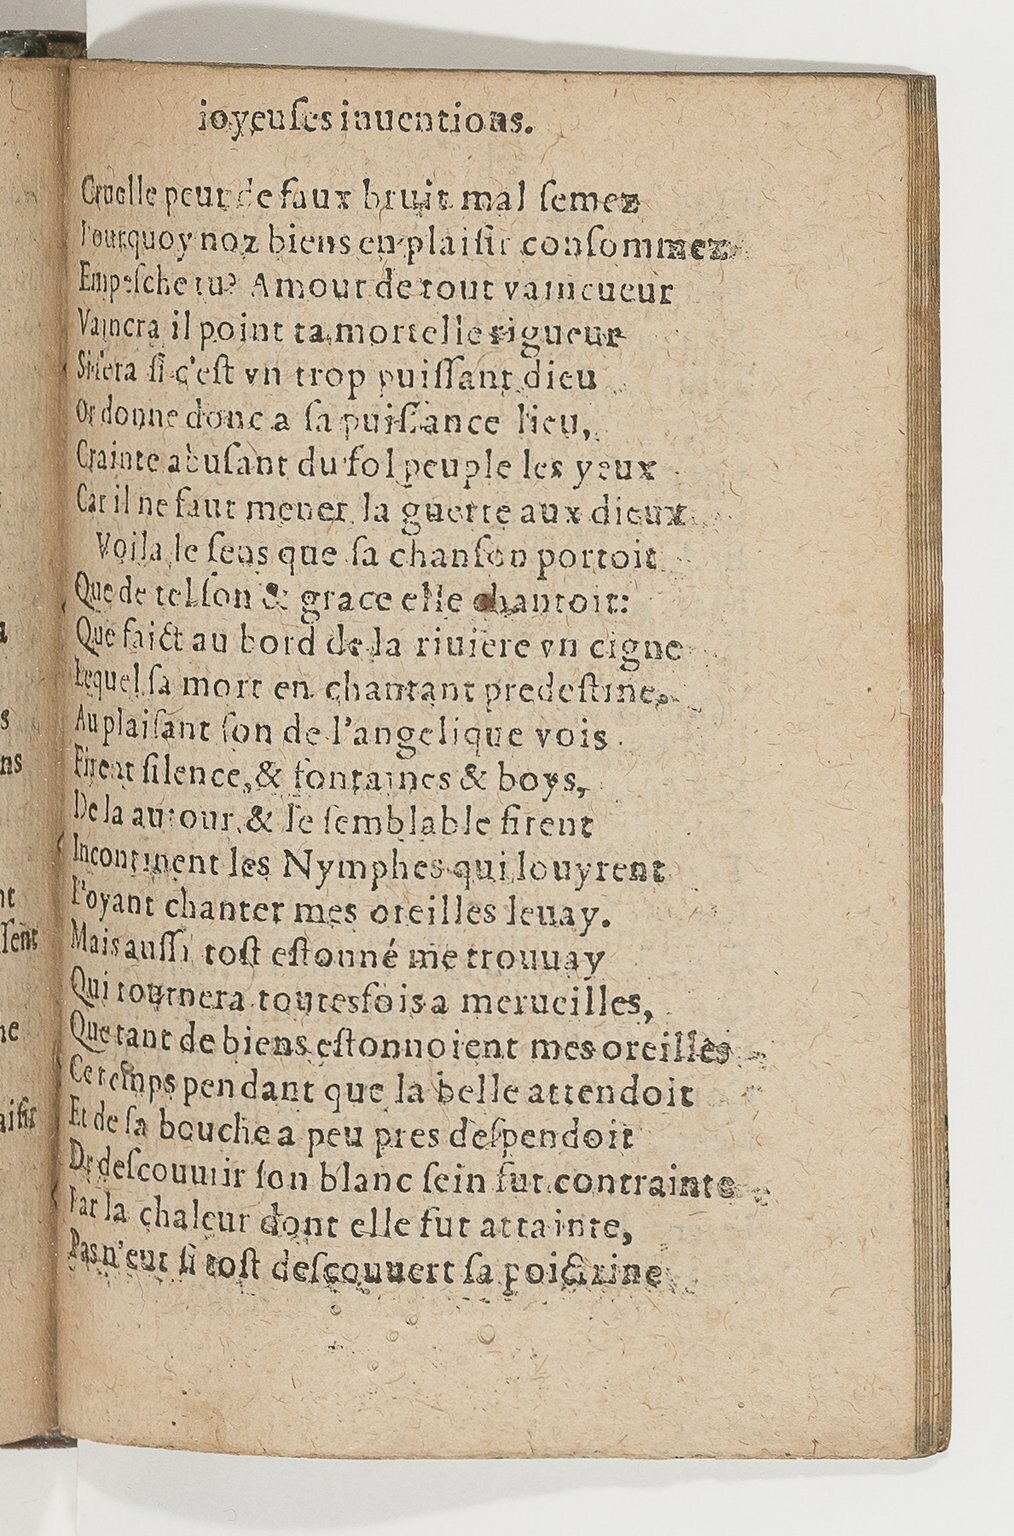 ioyeuſes inuentions.
Cruelle peur de faux bruit mal ſemez
Pourquoy noz biens en plaiſir conſommez
Empeſche tu? Amour de tout vaincueur
Vaincra il point ta mortelle rigueur
Si fera ſi c'eſt vn trop puiſſant dieu
Or donne donc a ſa puiſſance lieu,
Crainte abuſant du fol peuple les yeux
Car il ne faut mener la guerre aux dieux
Voila le ſens que ſa chanſon portoit
Que de tel ſon & grace elle chantoit:
Que faict au bord de la riuiere vn cigne
Lequel ſa mort en chantant predeſtine,
Au plaiſant ſon de l'angelique vois
Firent ſilence, & fontaines & boys,
De la autour, & le ſemblable firent
Incontinent les Nymphes qui l'ouyrent
L'oyant chanter mes oreilles leuay.
Mais auſſi toſt eſtonné me trouuay
Qui tournera toutesfois a merueilles,
Que tant de biens eſtonnoient mes oreilles
Ce temps pendant que la belle attendoit
Et de ſa bouche a peu pres deſpendoit
De deſcouurir ſon blanc ſein fut contrainte
Par la chaleur dont elle fut attainte,
Pas n'eut ſi toſt deſcouuert ſa poictrine
a
s
ns
nt
ſent
ne
aiſir